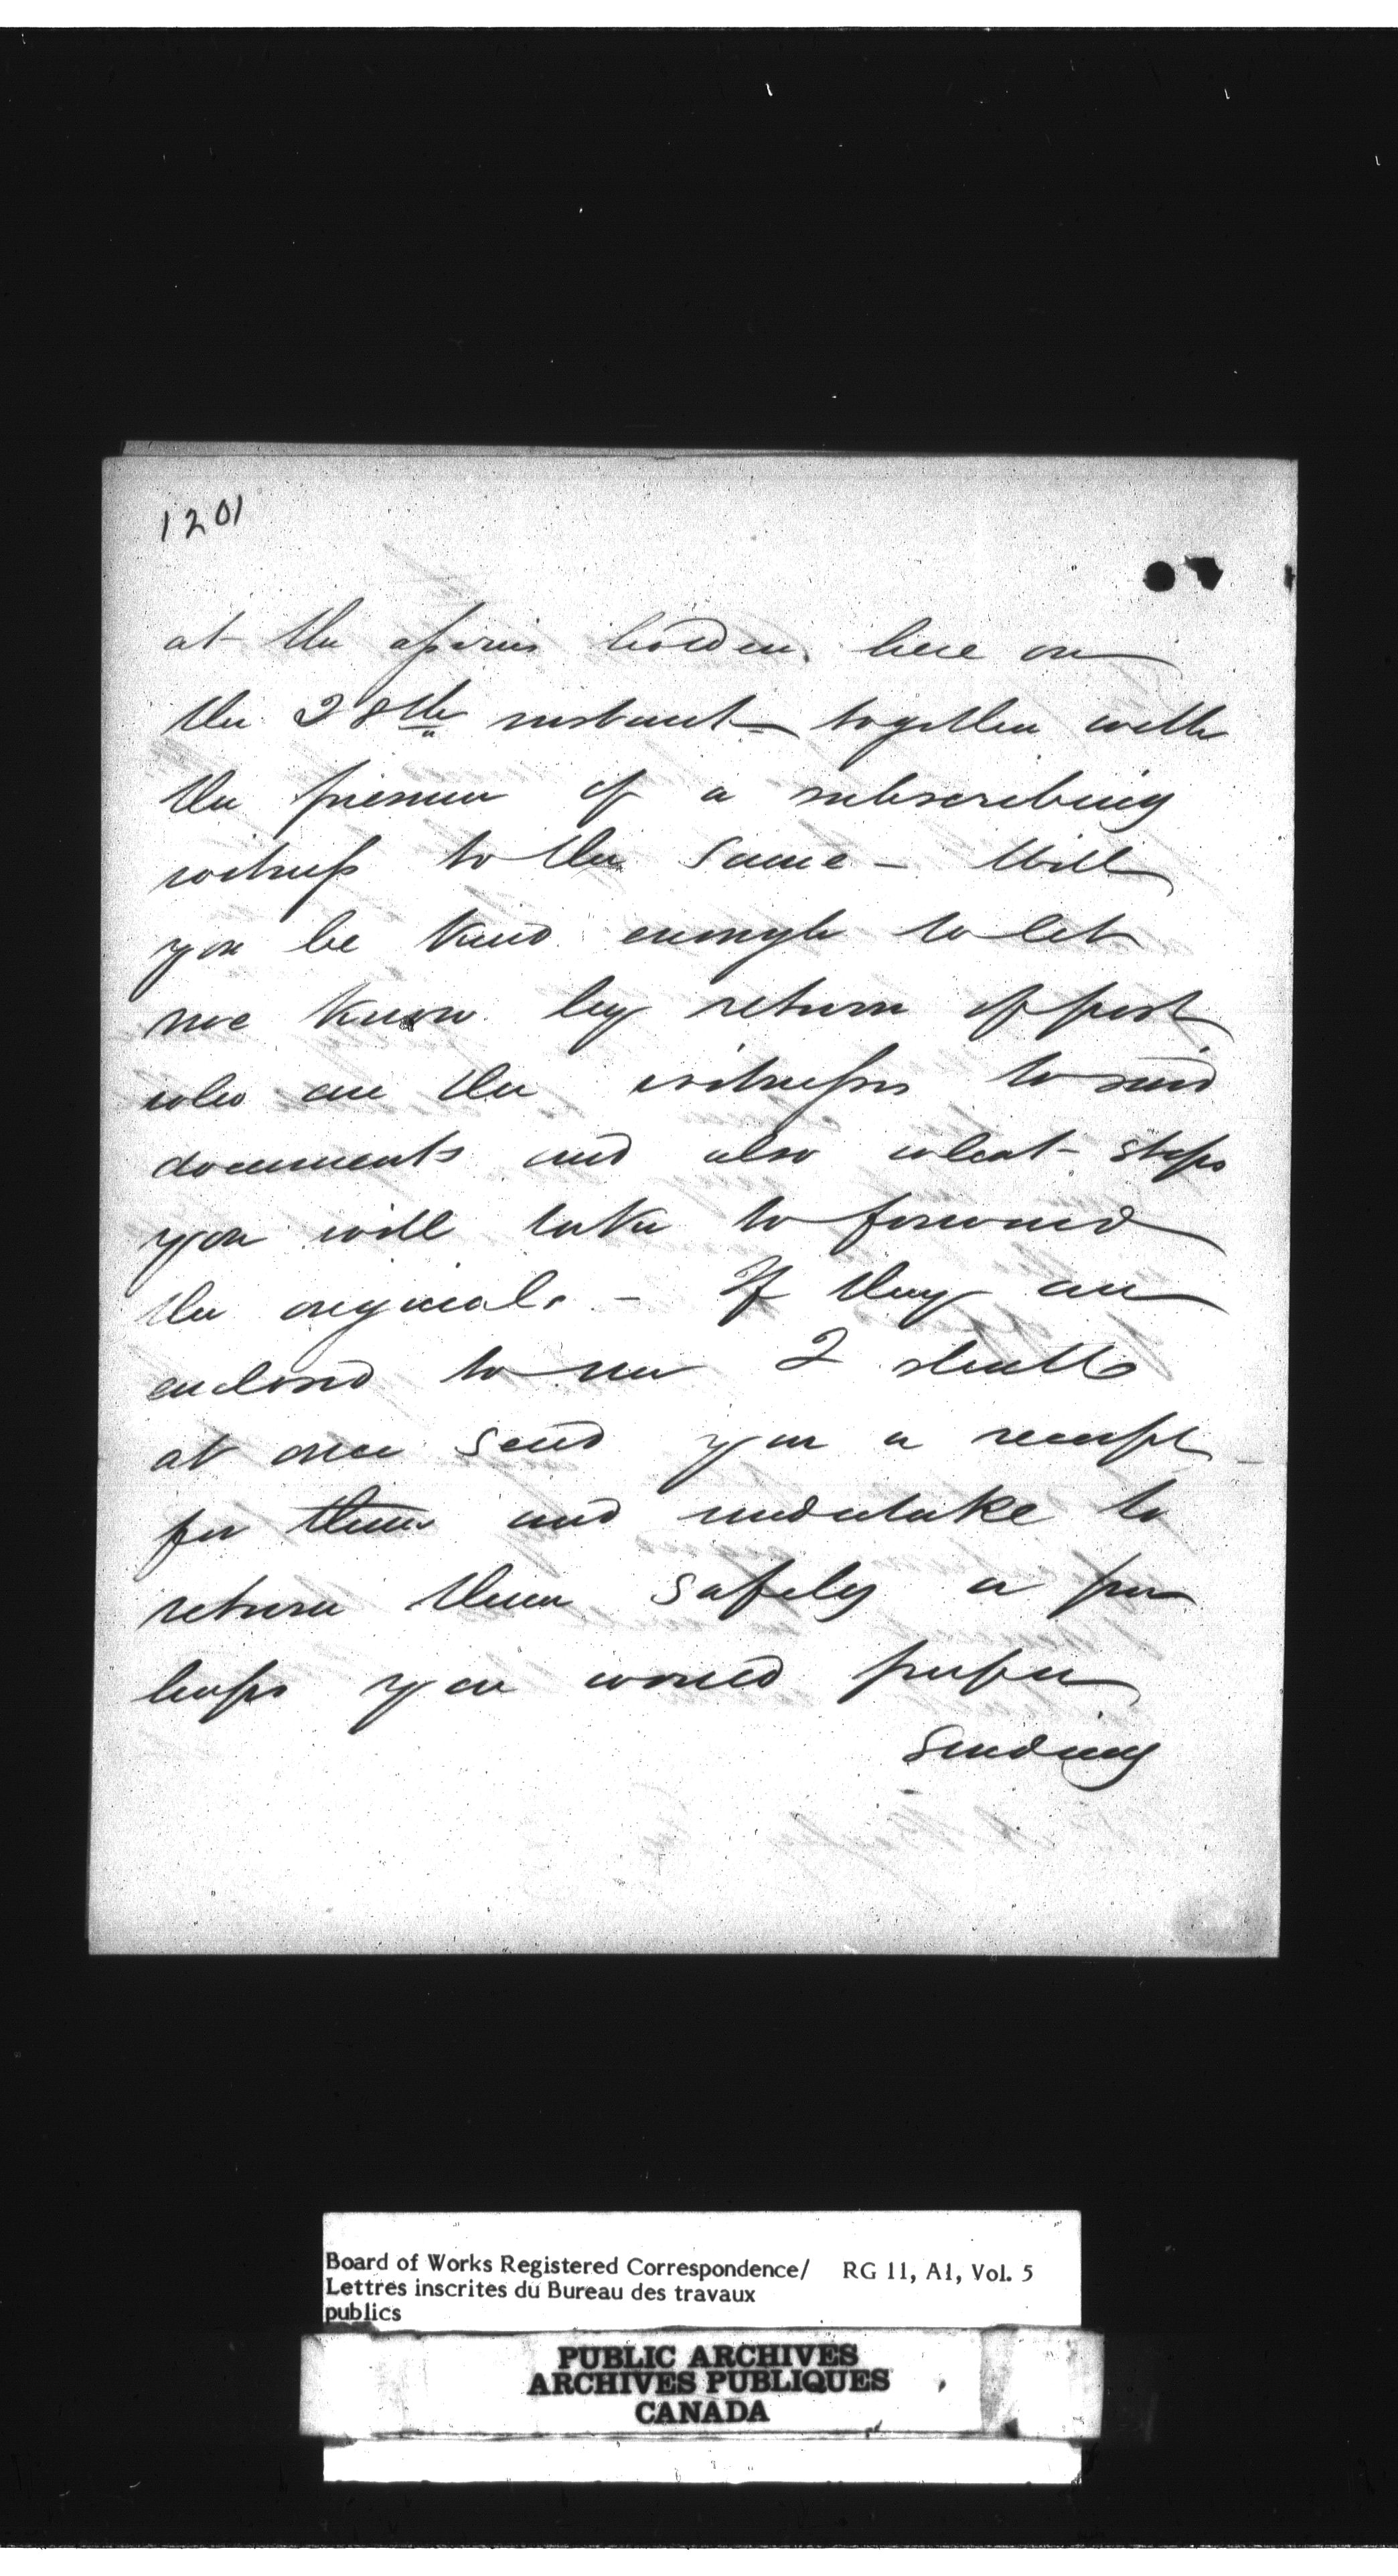 1201
at the assizes holden here on
the 28th instant together with
the presence of a subscribing
witness to the same - Will
you be kind enough to let
me know by return of post
who are the witnesses to said
documents and also what steps
you will take to forward
the originals - If they are
enclosed to me I shall
at once send you a receipt
for them and undertake to
return them safely or per
haps you would prefer
sending
Board of Works Registered Correspondence/ RG 11, A1, Vol. 5
Lettres inscrites du Bureau des travaux
publics
PUBLIC ARCHIVES
ARCHIVES PUBLIQUES
CANADA